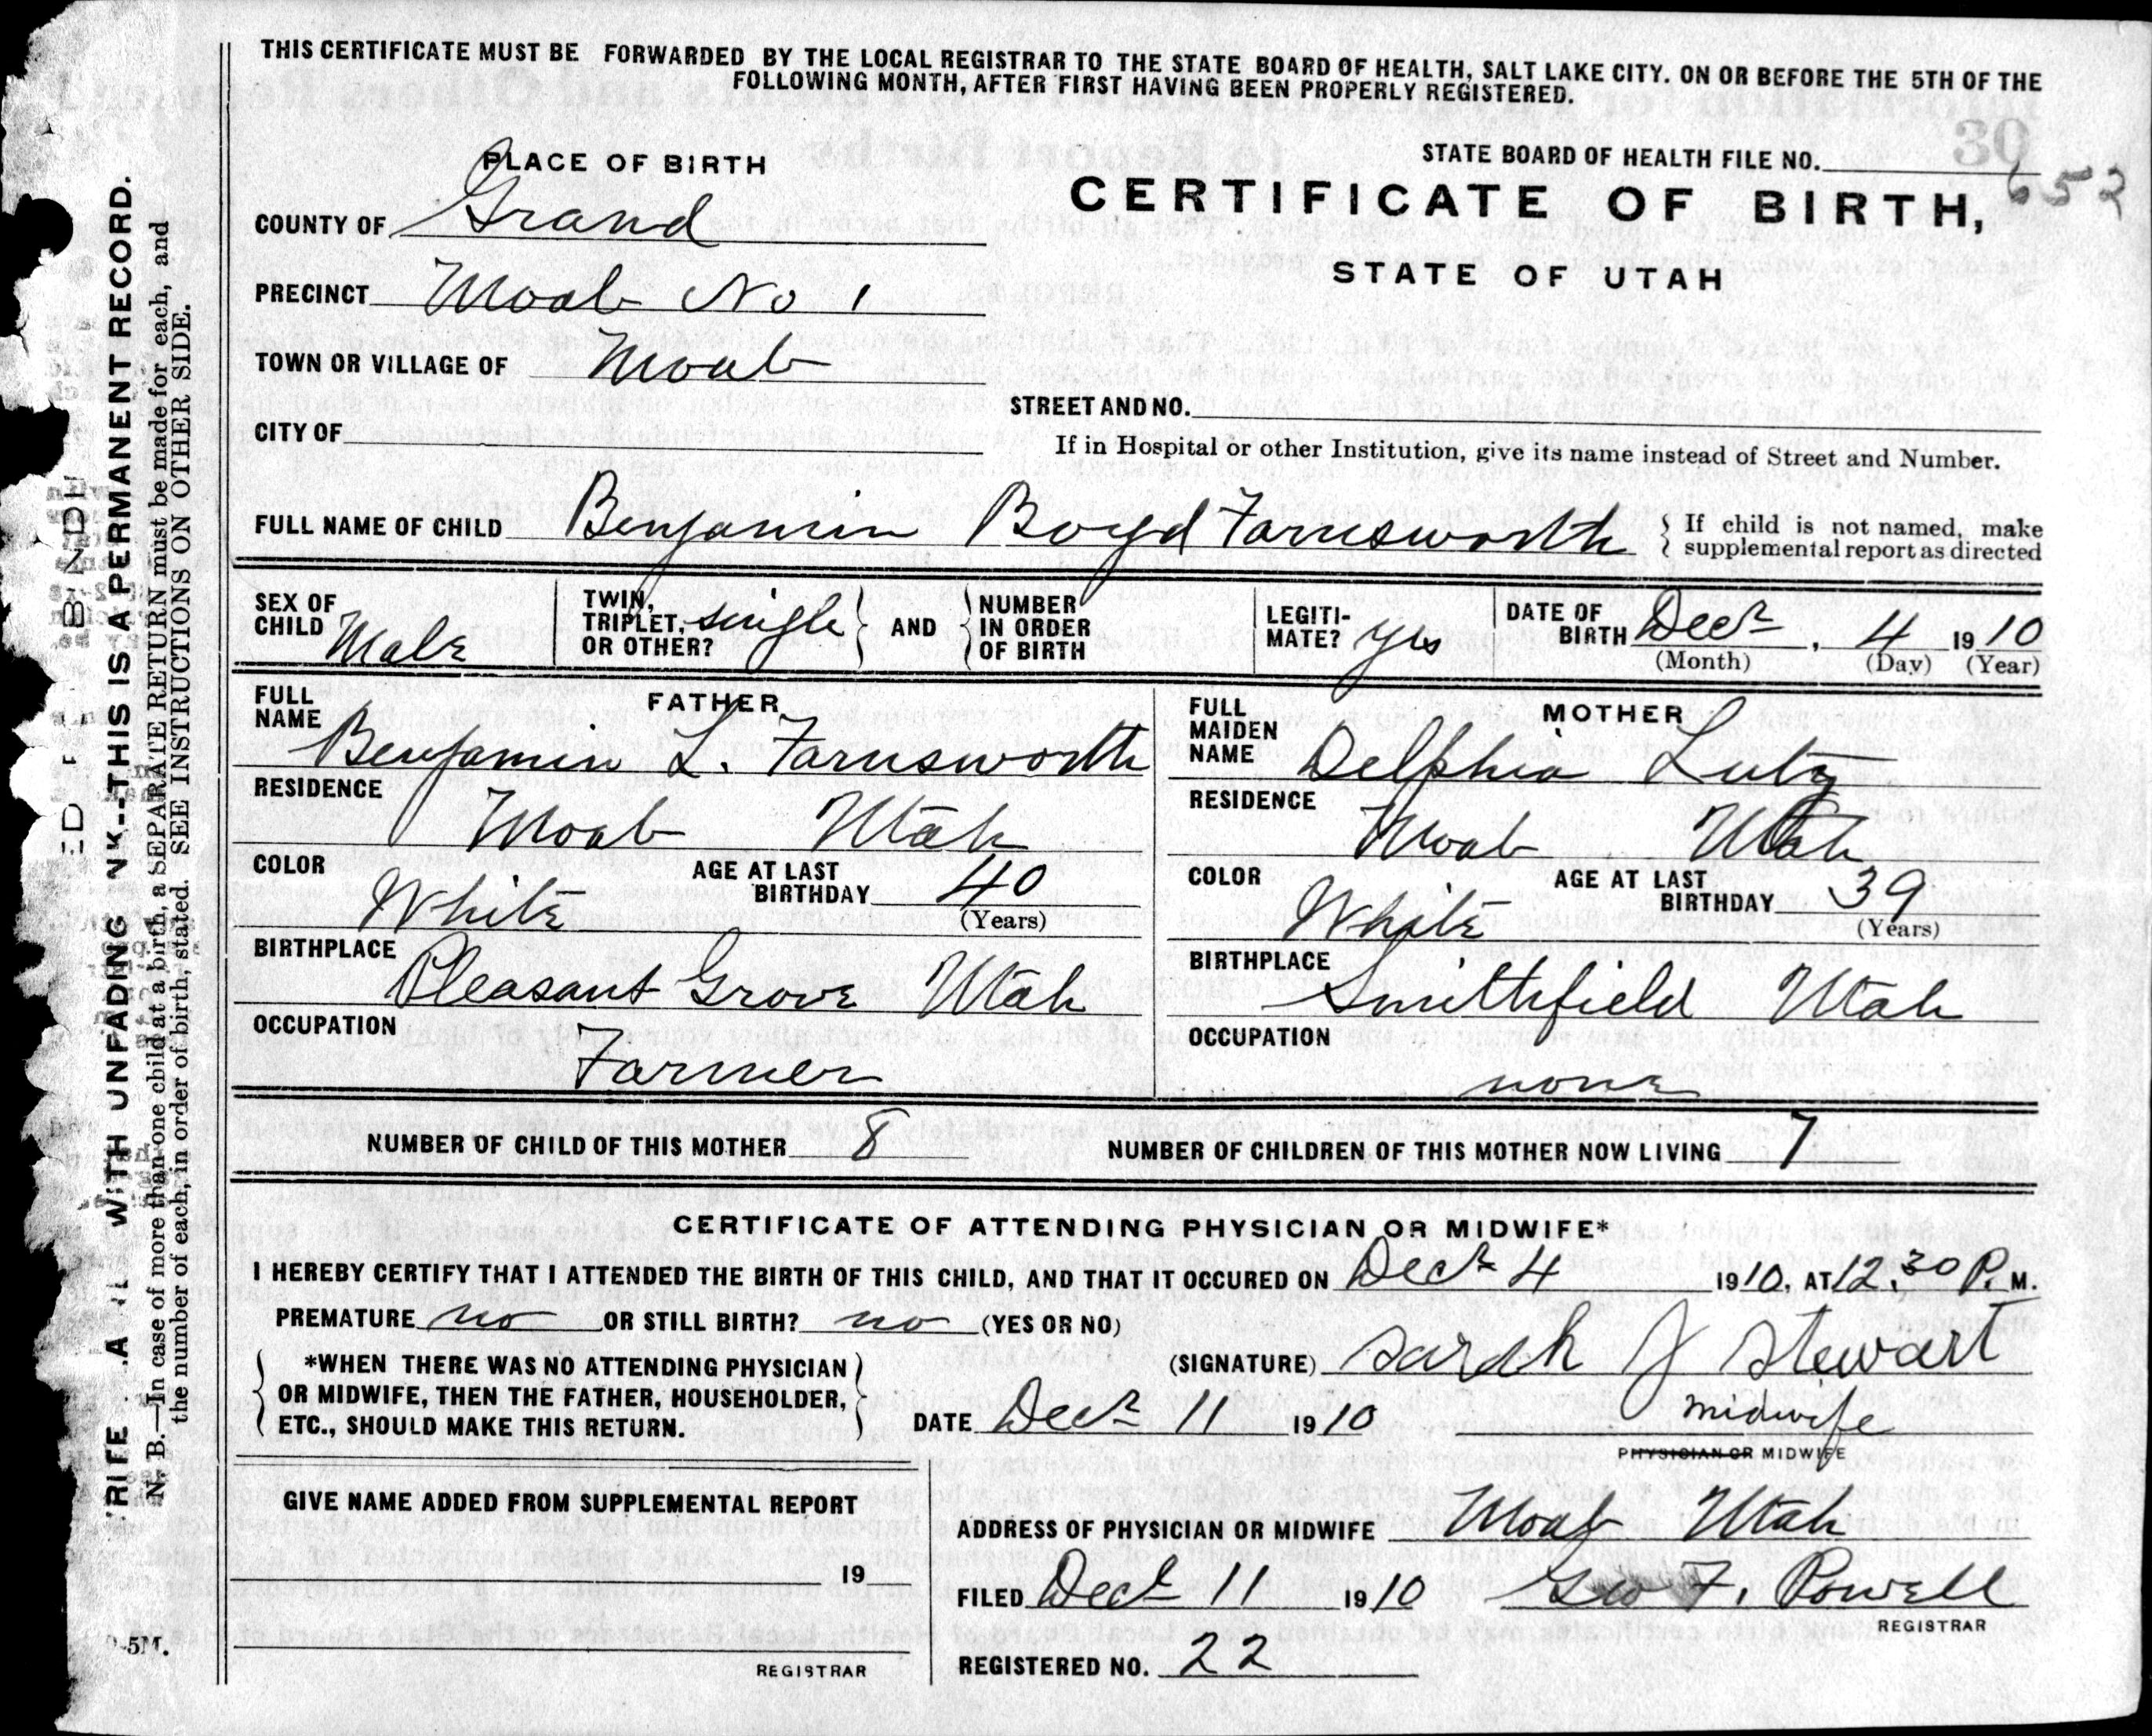 THIS CERTIFICATE MUST BE FORWARDED BY THE LOCAL REGISTRAR TO THE STATE BOARD OF HEALTH, SALT LAKE CITY. ON OR BEFORE THE 5TH OF THE
FOLLOWING MONTH, AFTER FIRST HAVING BEEN PROPERLY REGISTERED.
PLACE OF BIRTH
STATE BOARD OF HEALTH FILE NO. 30
652
CERTIFICATE OF BIRTH,
STATE OF UTAH
COUNTY OF Grand
PRECINCT Moab No 1
TOWN OR VILLAGE OF Moab
STREET AND NO.
CITY OF
If in Hospital or other Institution, give its name instead of Street and Number.
FULL NAME OF CHILD Benjamin Boyd Farnsworth
If child is not named, make
supplemental report as directed
SEX OF CHILD Male
TWIN, TRIPLET, OR OTHER? single
AND
NUMBER IN ORDER OF BIRTH
LEGITIMATE? yes
DATE OF BIRTH Decr, 4 1910
(Month) (Day) (Year)
FATHER
FULL NAME Benjamin L. Farnsworth
RESIDENCE
Moab Utah
COLOR White AGE AT LAST BIRTHDAY 40
(Years)
BIRTHPLACE
Pleasant Grove Utah
OCCUPATION
Farmer
MOTHER
FULL MAIDEN NAME Delphia Lutz
RESIDENCE
Moab Utah
COLOR White AGE AT LAST BIRTHDAY 39
(Years)
BIRTHPLACE
Smithfield Utah
OCCUPATION
none
NUMBER OF CHILD OF THIS MOTHER 8 NUMBER OF CHILDREN OF THIS MOTHER NOW LIVING 7
CERTIFICATE OF ATTENDING PHYSICIAN OR MIDWIFE*
I HEREBY CERTIFY THAT I ATTENDED THE BIRTH OF THIS CHILD, AND THAT IT OCCURED ON Decr 4 1910, AT 12.30 P. M.
PREMATURE no OR STILL BIRTH? no (YES OR NO)
*WHEN THERE WAS NO ATTENDING PHYSICIAN
OR MIDWIFE, THEN THE FATHER, HOUSEHOLDER,
ETC., SHOULD MAKE THIS RETURN.
(SIGNATURE) Sarah J Stewart
DATE Decr 11 1910
midwife
PHYSICIAN OR MIDWIFE
GIVE NAME ADDED FROM SUPPLEMENTAL REPORT
19
REGISTRAR
ADDRESS OF PHYSICIAN OR MIDWIFE Moab Utah
FILED Decr 11 1910 Geo F. Powell
REGISTRAR
REGISTERED NO. 22
WITH UNFADING INK--THIS IS A PERMANENT RECORD.
N. B.—In case of more than one child at a birth, a SEPARATE RETURN must be made for each, and
the number of each, in order of birth, stated. SEE INSTRUCTIONS ON OTHER SIDE.
5M.